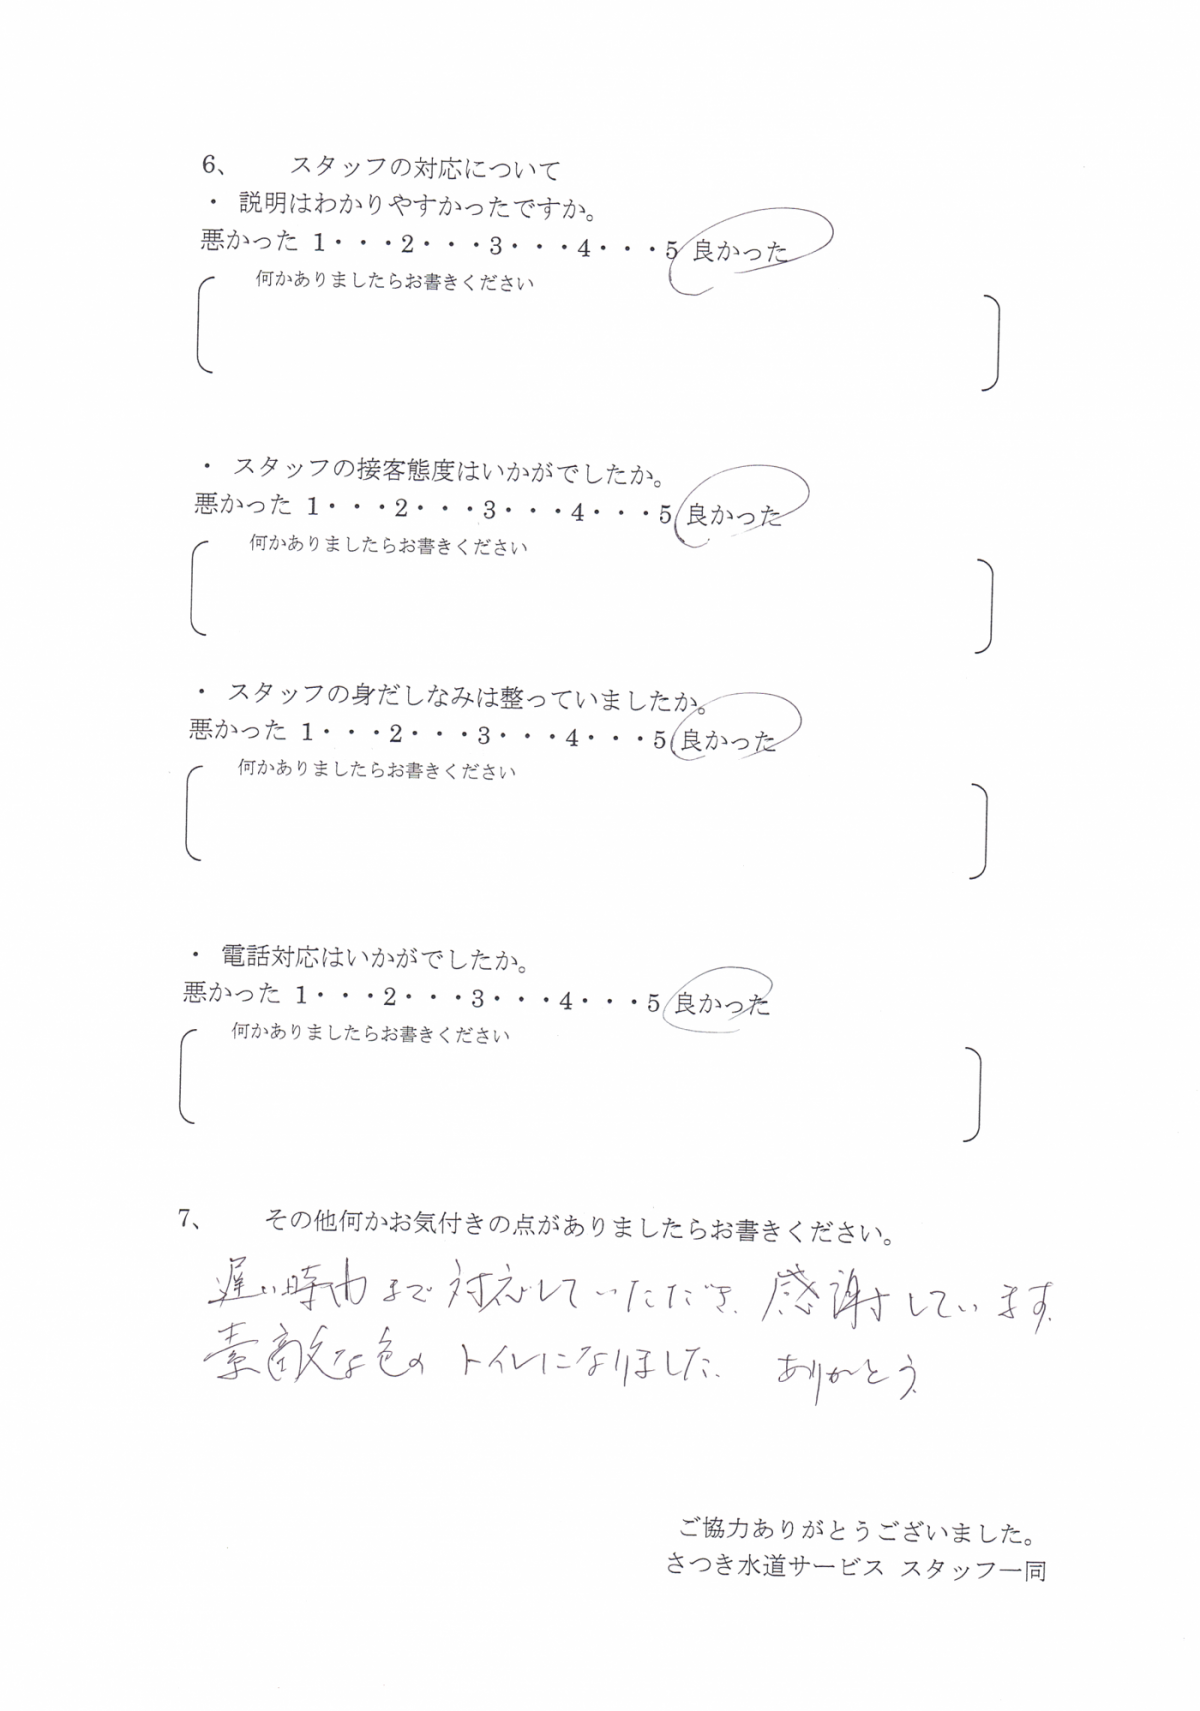 6、 スタッフの対応について
・ 説明はわかりやすかったですか。
悪かった 1・・・2・・・3・・・4・・・5 良かった
何かありましたらお書きください
・ スタッフの接客態度はいかがでしたか。
悪かった 1・・・2・・・3・・・4・・・5 良かった
何かありましたらお書きください
・ スタッフの身だしなみは整っていましたか。
悪かった 1・・・2・・・3・・・4・・・5 良かった
何かありましたらお書きください
・ 電話対応はいかがでしたか。
悪かった 1・・・2・・・3・・・4・・・5 良かった
何かありましたらお書きください
7、 その他何かお気付きの点がありましたらお書きください。
遅い時間まで対応していただき、感謝しています。
素敵な色のトイレになりました。 ありがとう。
ご協力ありがとうございました。
さつき水道サービス スタッフ一同